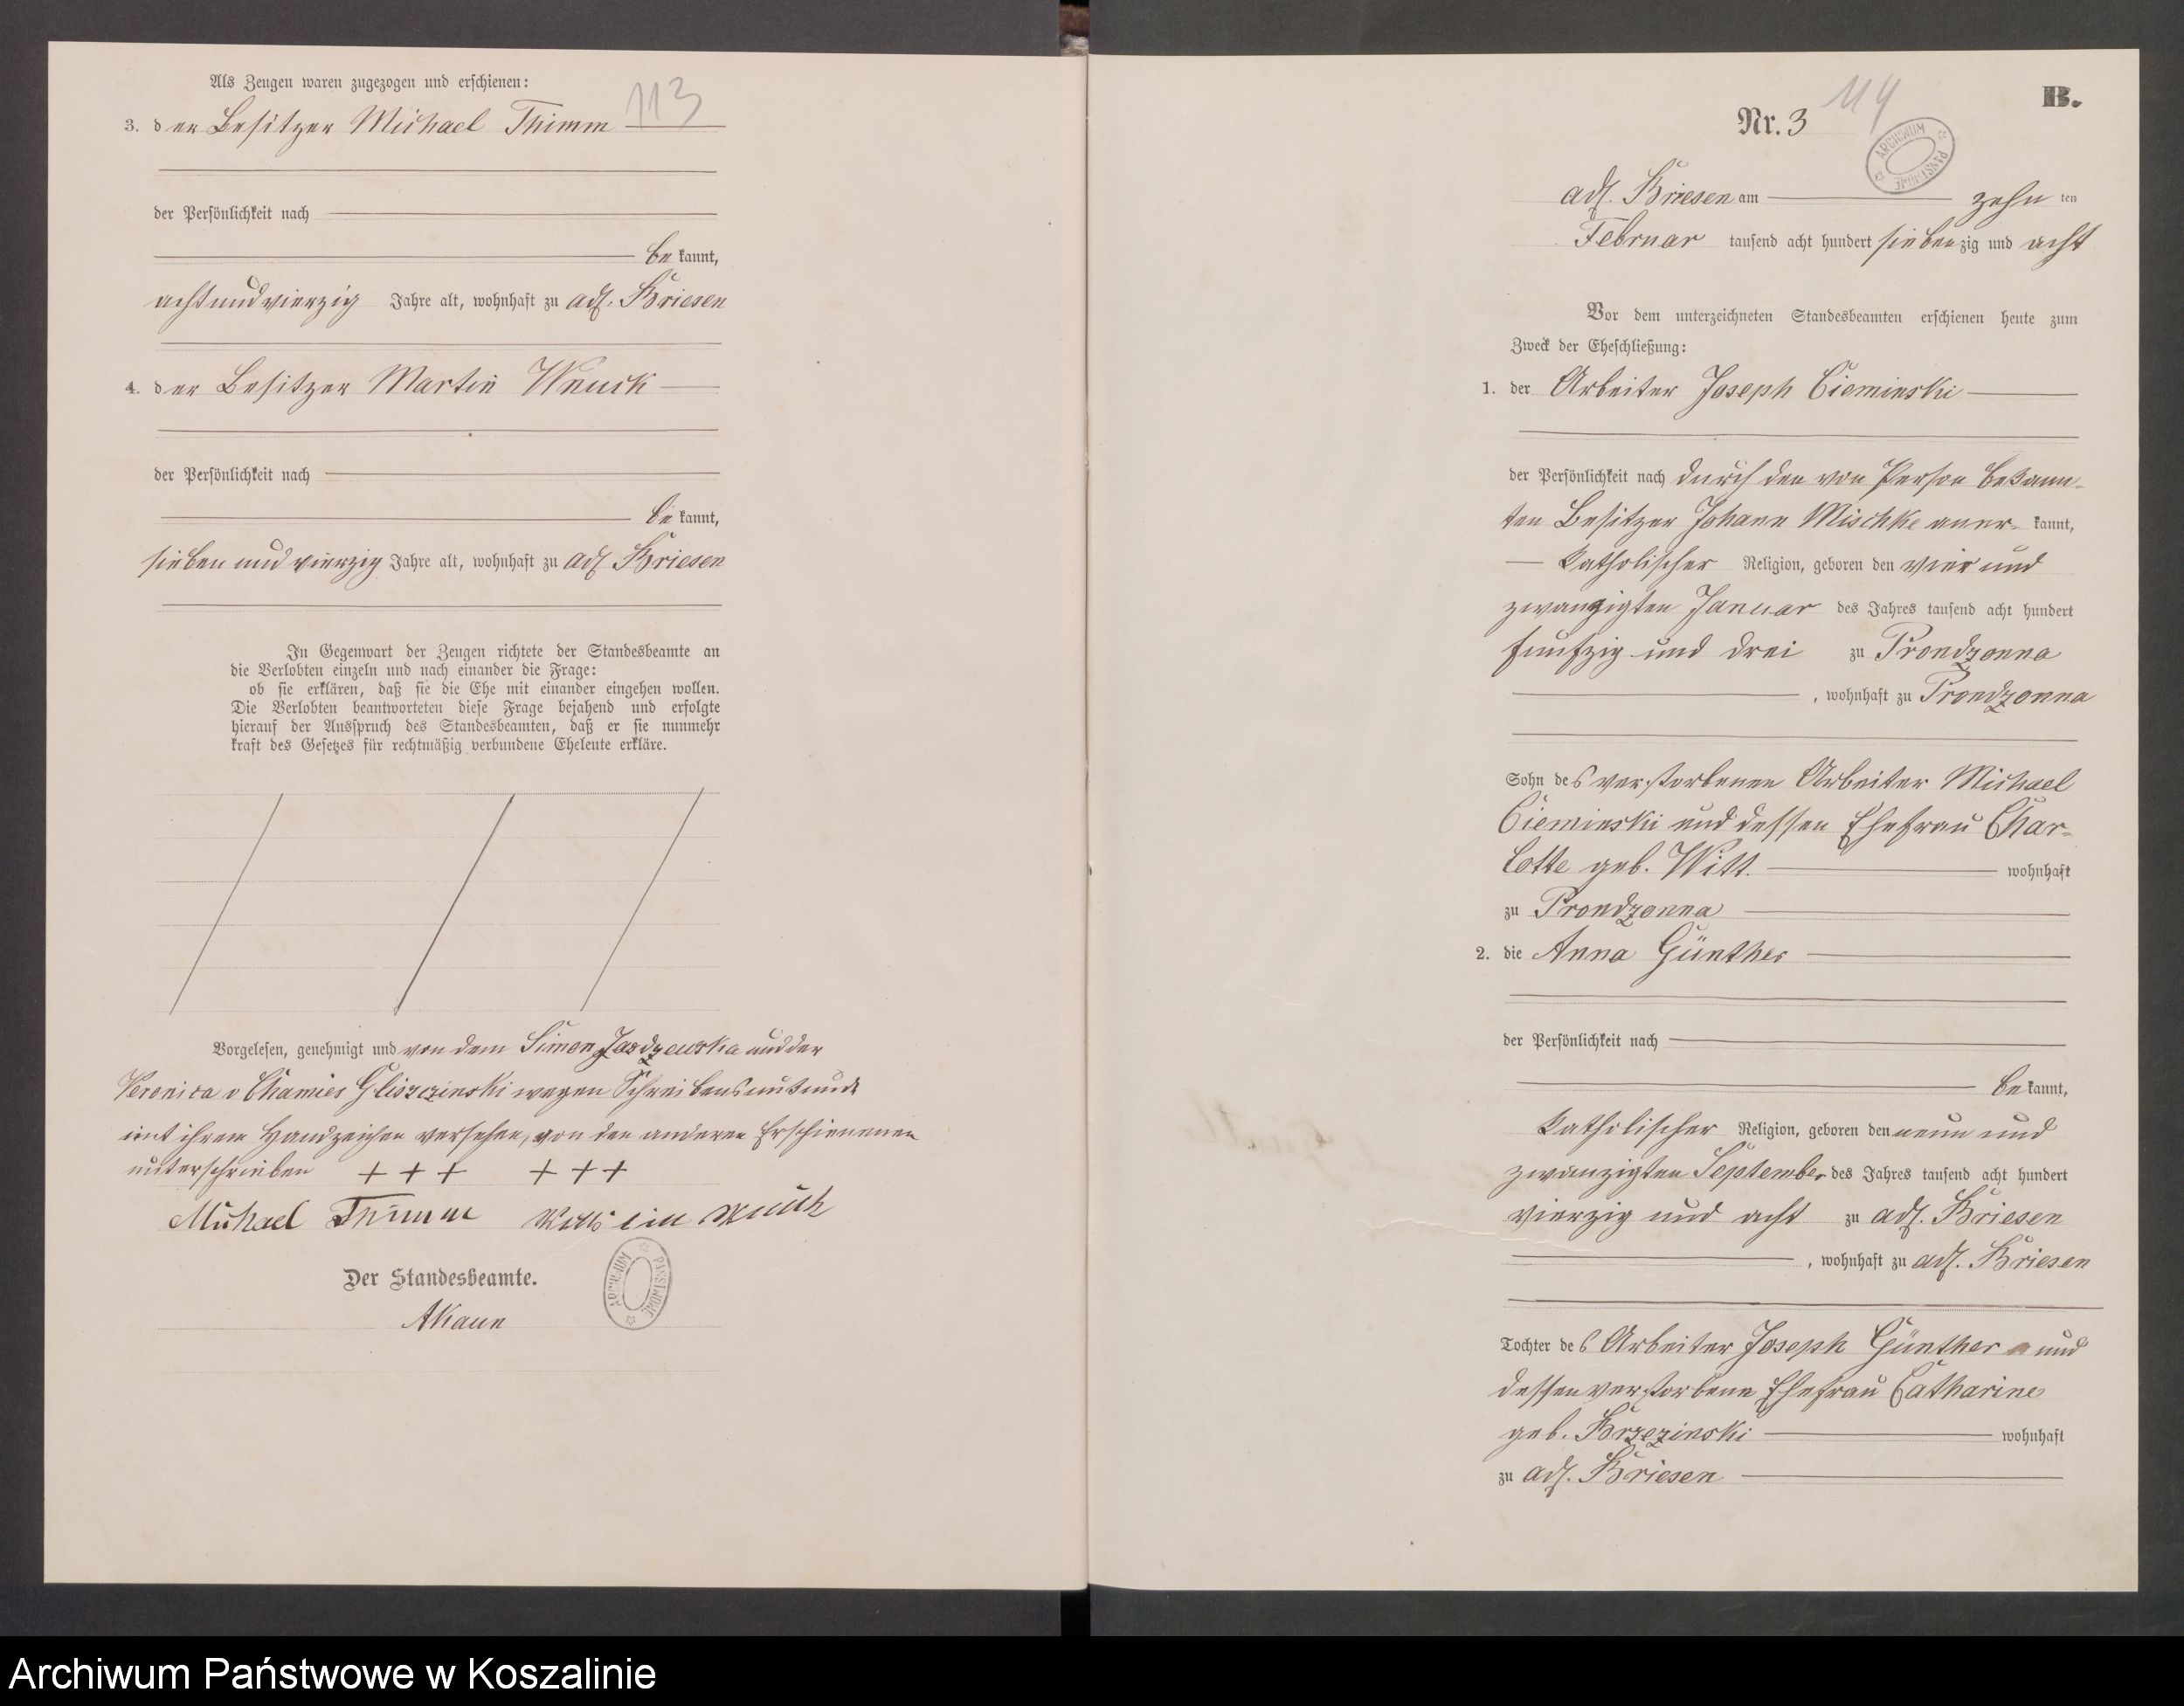 Als Zeugen waren zugezogen und erschienen:
113
3. der Besitzer Michael Thimm
der Persönlichkeit nach
bekannt,
achtundvierzig Jahre alt, wohnhaft zu adl. Briesen
4. der Besitzer Martin Wnuck
der Persönlichkeit nach
bekannt,
sieben und vierzig Jahre alt, wohnhaft zu adl Briesen
In Gegenwart der Zeugen richtete der Standesbeamte an
die Verlobten einzeln und nach einander die Frage:
ob sie erklären, daß sie die Ehe mit einander eingehen wollen.
Die Verlobten beantworteten diese Frage bejahend und erfolgte
hierauf der Ausspruch des Standesbeamten, daß er sie nunmehr
kraft des Gesetzes für rechtmäßig verbundene Eheleute erkläre.
Vorgelesen, genehmigt und von dem Simon Jasdzewska und der
Veronica v Chamier Gliszczinski wegen Schreibensunkunde
mit ihrem Handzeichen versehen, von den anderen Erschienenen
unterschrieben + + + + + +
Michael Thimm
Der Standesbeamte.
AKaun
ARCHIWUM PAŃSTWOWE
B.
114
Nr. 3
ARCHIWUM PAŃSTWOWE
adl. Briesen am zehn ten
Februar tausend acht hundert siebenzig und acht
Vor dem unterzeichneten Standesbeamten erschienen heute zum
Zweck der Eheschließung:
1. der Arbeiter Joseph Cieminski
der Persönlichkeit nach durch den von Person bekann-
ten Besitzer Johann Mischke aner- kannt,
katholischer Religion, geboren den vier und
zwanzigten Januar des Jahres tausend acht hundert
funfzig und drei zu Prondzonna
, wohnhaft zu Prondzonna
Sohn des verstorbenen Arbeiter Michael
Cieminski und dessen Ehefrau Char-
lotte geb. Witt. wohnhaft
zu Prondzonna
2. die Anna Günther
der Persönlichkeit nach
bekannt,
katholischer Religion, geboren den neun und
zwanzigten September des Jahres tausend acht hundert
vierzig und acht zu adl. Briesen
, wohnhaft zu adl. Briesen
Tochter des Arbeiter Joseph Günther und
dessen verstorbene Ehefrau Catharine
geb. Brzezinski wohnhaft
zu adl. Briesen
Archiwum Państwowe w Koszalinie